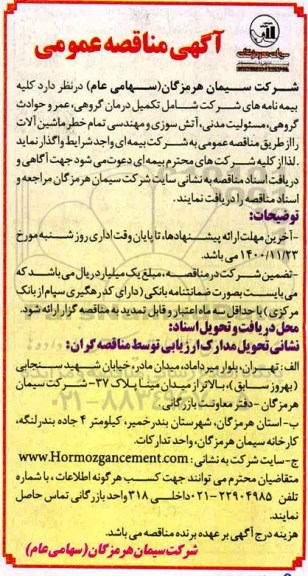 آگهی مناقصه عمومی
شرکت سیمان هرمزگان(سهامی عام) درنظر دارد کلیه
بیمه نامه های شرکت شامل تکمیل درمان گروهی، عمر و حوادث
گروهی، مسئولیت مدنی، آتش سوزی و مهندسی تمام خطر ماشین آلات
را از طریق مناقصه عمومی به شرکت بیمه ای واجد شرایط واگذار نماید
.لذا از کلیه شرکت های محترم بیمه ای دعوت می شود جهت آگاهی و
دریافت اسناد مناقصه به نشانی سایت شرکت سیمان هرمزگان مراجعه و
اسناد مناقصه را دریافت نمایند .
توضیحات:
-آخرین مهلت ارائه پیشنهادها، تا پایان وقت اداری روز شنبه مورخ
۱۴۰۰/۱۱/۲۳ می باشد.
-تضمین شرکت در مناقصه، مبلغ یک میلیارد ریال می باشد که
می بایست بصورت ضمانتنامه بانکی (دارای کد رهگیری سپام از بانک
مرکزی) با حداقل سه ماه اعتبار و قابل تمدید به مناقصه گزار ارائه شود.
محل دریافت و تحویل اسناد:
نشانی تحویل مدارک ارزیابی توسط مناقصه گران:
الف: تهران، بلوار میرداماد، میدان مادر، خیابان شهید سنجابی
(بهروز سابق)، بالاتر از میدان مینا پلاک ۳۷- شرکت سیمان
هرمزگان - دفتر معاونت بازرگانی.
ب- استان هرمزگان، شهرستان بندرخمیر، کیلومتر ۴ جاده بندرلنگه،
کارخانه سیمان هرمزگان، واحد تدارکات.
ج-سایت شرکت به نشانی: www.Hormozgancement.com
متقاضیان محترم می توانند جهت کسب هر گونه اطلاعات ، با شماره
تلفن ۲۲۹۰۴۹۸۵-۰۲۱ داخلی ۳۱۸ واحد بازرگانی تماس حاصل
نمایند.
هزینه درج آگهی بر عهده برنده مناقصه می باشد.
شرکت سیمان هرمزگان (سهامی عام)